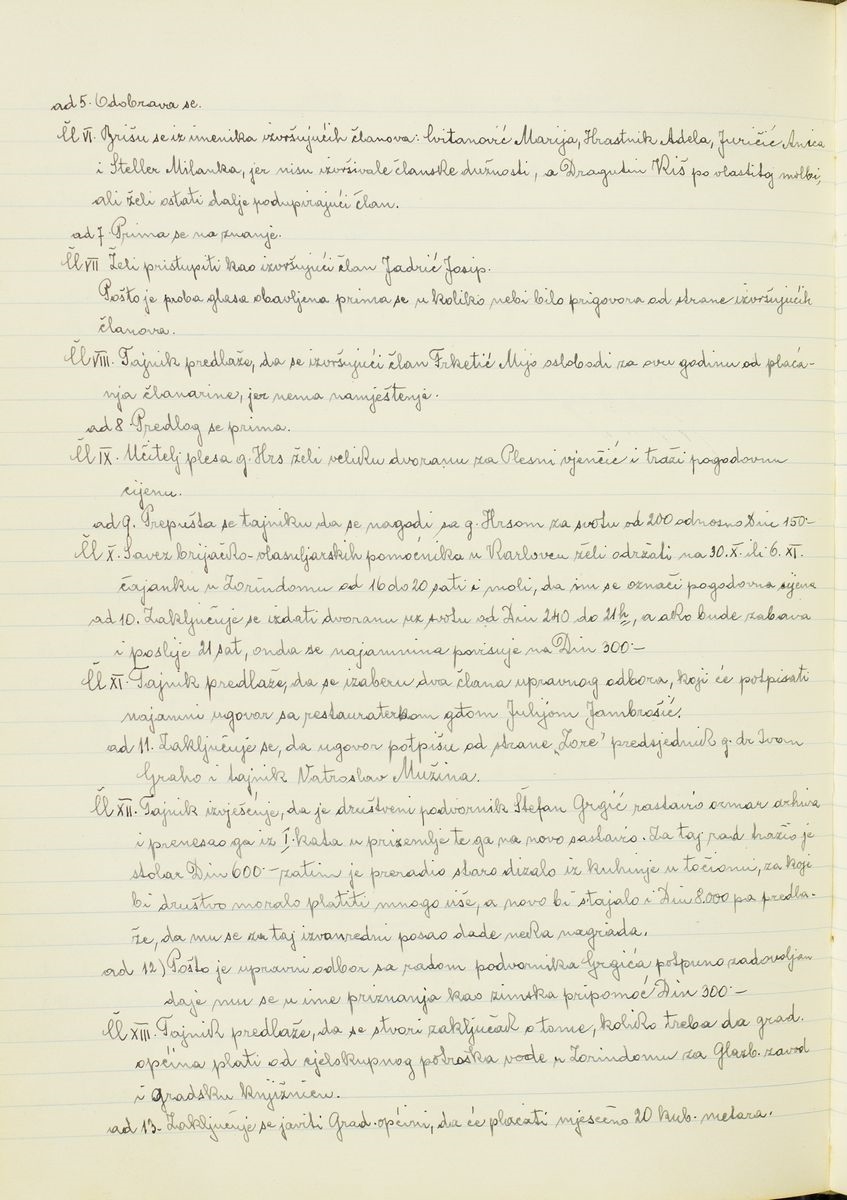 ad 5. Odobrava se.
Čl VI. Brišu se iz imenika izvršujućih članova: Cvitanović Marija, Hrastnik Adela, Juričić Anica
i Steller Milanka, jer nisu izvršivale članske dužnosti, a Dragutin Kiš po vlastitoj molbi,
ali želi ostati dalje podupirajući član.
ad 7. Prima se na znanje.
Čl VII Želi pristupiti kao izvršujući član Jadrić Josip.
Pošto je proba glasa obavljena prima se u koliko nebi bilo prigovora od strane izvršujućih
članova.
Čl VIII. Tajnik predlaže, da se izvršujući član Frketić Mijo oslobodi za ovu godinu od plaća-
nja članarine, jer nema namještenje.
ad 8. Predlog se prima.
Čl IX. Učitelj plesa g. Hrs želi veliku dvoranu za Plesni vjenčić i traži pogodovnu
cijenu.
ad 9. Prepušta se tajniku da se nagodi sa g. Hrsom za svotu od 200 odnosno Din 150.-
Čl X. Savez brijačko-vlasuljarskih pomoćnika u Karlovcu želi održati na 30. X. ili 6. XI.
čajanku u Zorindomu od 16 do 20 sati i moli, da im se označi pogodovna cijena
ad 10. Zaključuje se izdati dvoranu uz svotu od Din 240 do 21h, a ako bude zabava
i poslije 21 sat, onda se najamnina povisuje na Din 300.-
Čl XI. Tajnik predlaže, da se izaberu dva člana upravnog odbora, koji će potpisati
najamni ugovor sa restauraterkom gđom Julijom Jambrošić.
ad 11. Zaključuje se, da ugovor potpišu od strane „Zore" predsjednik g. dr Ivan
Graho i tajnik Vatroslav Mužina.
Čl XII. Tajnik izvješćuje, da je društveni podvornik Štefan Grgić rastavio ormar arhiva
i prenesao ga iz I. kata u prizemlje te ga na novo sastavio. Za taj rad tražio je
stolar Din 600.- zatim je preradio staro dizalo iz kuhinje u točioni, za koje
bi društvo moralo platiti mnogo više, a novo bi stajalo i Din 8.000 pa predla-
že, da mu se za taj izvanredni posao dade neka nagrada.
ad 12) Pošto je upravni odbor sa radom podvornika Grgića potpuno zadovoljan
daje mu se u ime priznanja kao zimska pripomoć Din 300.-
Čl XIII. Tajnik predlaže, da se stvori zaključak o tome, koliko treba da grad.
općina plati od cjelokupnog potroška vode u Zorindomu za Glazb. zavod
i gradsku knjižnicu.
ad 13. Zaključuje se javiti Grad. općini, da će plaćati mjesečno 20 kub. metara.